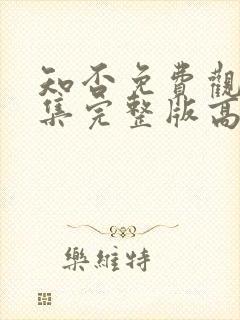 知否免費觀
集完整版高
樂維特